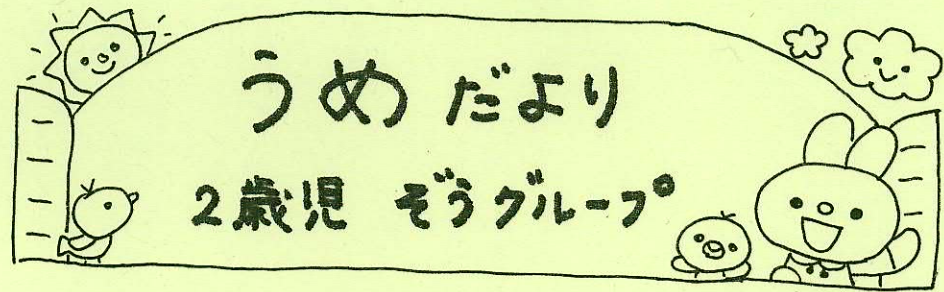 うめだより
2歳児 ぞうグループ